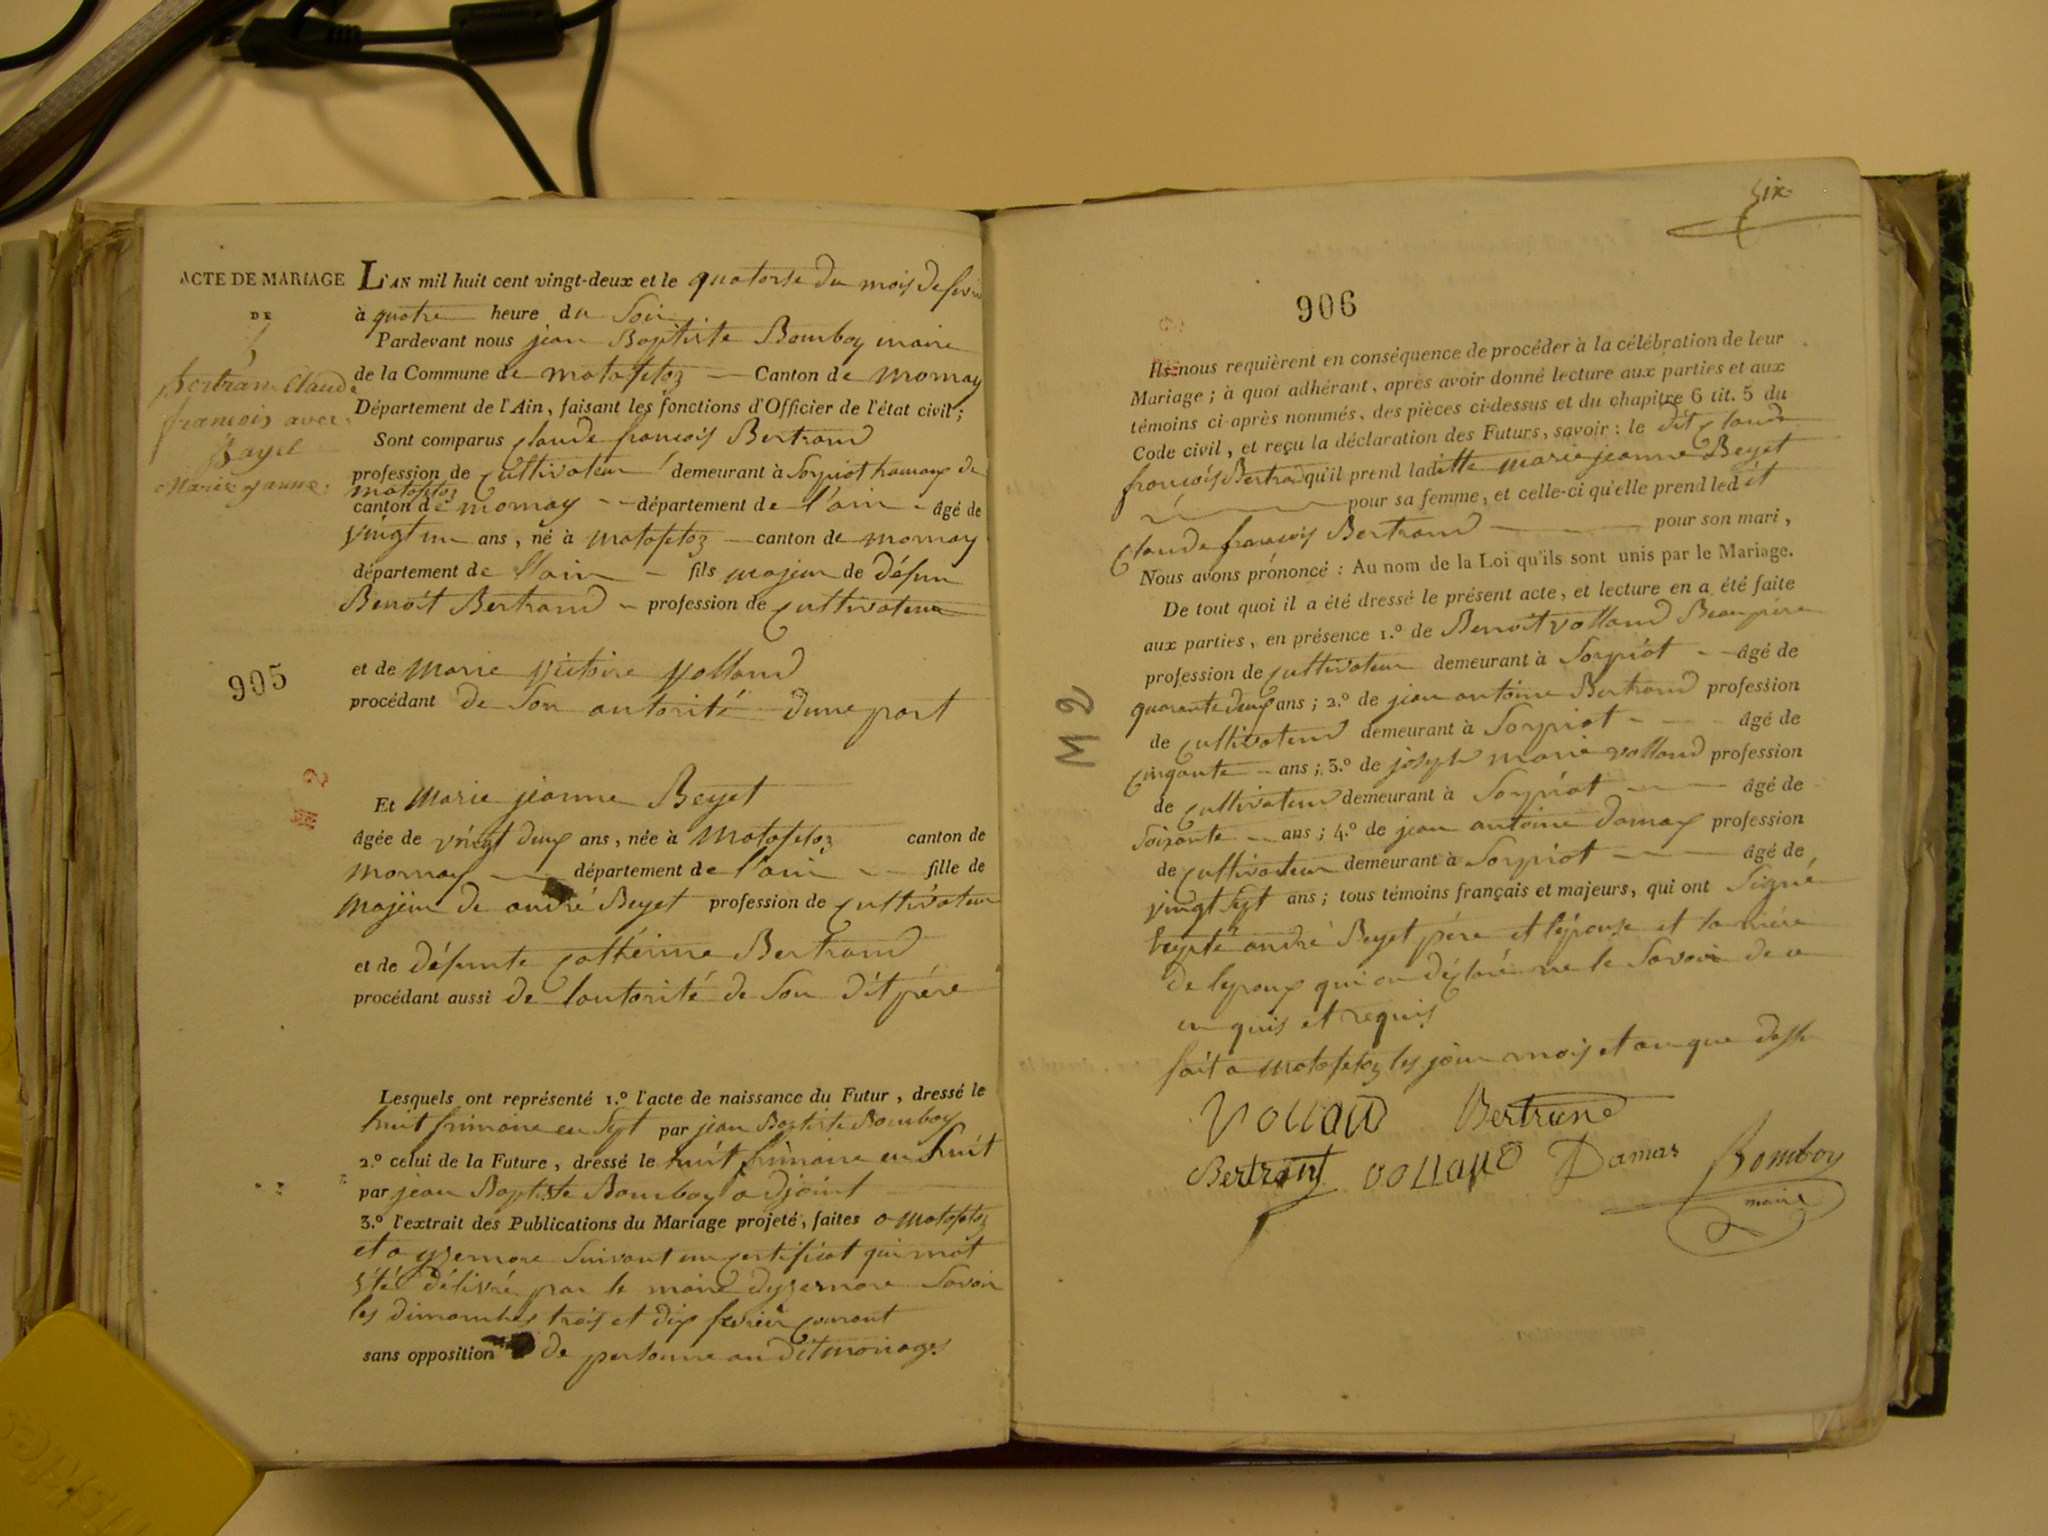 ACTE DE MARIAGE
DE
Bertran Claude
francois avec
Bayel
Marie janne
905
L'AN mil huit cent vingt-deux et le quatorse du mois de
à quatre heure du Soir
Pardevant nous jean Baptiste Bomboy maire
de la Commune de matafeloz Canton de mornay
Département de l'Ain, faisant les fonctions d'Officier de l'état civil;
Sont comparus claude francois Bertrand
profession de Cultivateur demeurant à Sorpiot hamaux de
matafeloz
canton de mornay département de l'ain âgé de
vingt un ans, né à matafeloz canton de mornay
département de l'ain fils majeur de défun
Benoit Bertrand profession de cultivateur
et de marie victoire volland
procédant de Son autorité dune part
Et marie jeanne Beyet
âgée de vingt deux ans, née à matafeloz canton de
mornay département de l'ain fille de
majeur de andré Beyet profession de cultivateur
et de défunte catherine Bertrand
procédant aussi de lautorité de Son dit père
Lesquels ont représenté 1.º l'acte de naissance du Futur, dressé le
huit frimaire en Sept par jean Baptiste Bomboy
2.º celui de la Future, dressé le huit frimaire en huit
par jean Baptiste Bomboy adjoint
3.º l'extrait des Publications du Mariage projeté, faites a matafeloz
et a yzernore Suivant un certificat qui mat
été délivré par le maire dyzernore Savoir
les dimanches trois et dix fevrier courant
sans opposition de personne au dit mariages
Six
906
Ils nous requièrent en conséquence de procéder à la célébration de leur
Mariage; à quoi adhérant, après avoir donné lecture aux parties et aux
témoins ci-après nommés, des pièces ci-dessus et du chapitre 6 tit. 5 du
Code civil, et reçu la déclaration des Futurs, savoir: le dit claude
francois Bertrand qu'il prend ladittte marie jeanne Beyet
pour sa femme, et celle-ci qu'elle prend led it
claude francois Bertrand pour son mari,
Nous avons prononcé: Au nom de la Loi qu'ils sont unis par le Mariage.
De tout quoi il a été dressé le présent acte, et lecture en a été faite
aux parties, en présence 1.º de Benoit volland Beaupère
profession de cultivateur demeurant à Sorpiot âgé de
quarante deux ans; 2.º de jean antoine Bertrand profession
de cultivateur demeurant à Sorpiot âgé de
cinqante ans; 3.º de joseph marie volland profession
de cultivateur demeurant à Sorpiot âgé de
Soixante ans; 4.º de jean antoine damaz profession
de cultivateur demeurant à Sorpiot âgé de
vingt Sept ans; tous témoins français et majeurs, qui ont Signé
andré Beyet père et lépouse et la mère
de lepoux qui on déclaré ne le Savoir de ce
en quis et requis
fait a matafeloz les jour mois et an que dessu
M 2
Volland Bertrand
Bertrant volland Damas Bomboy
maire